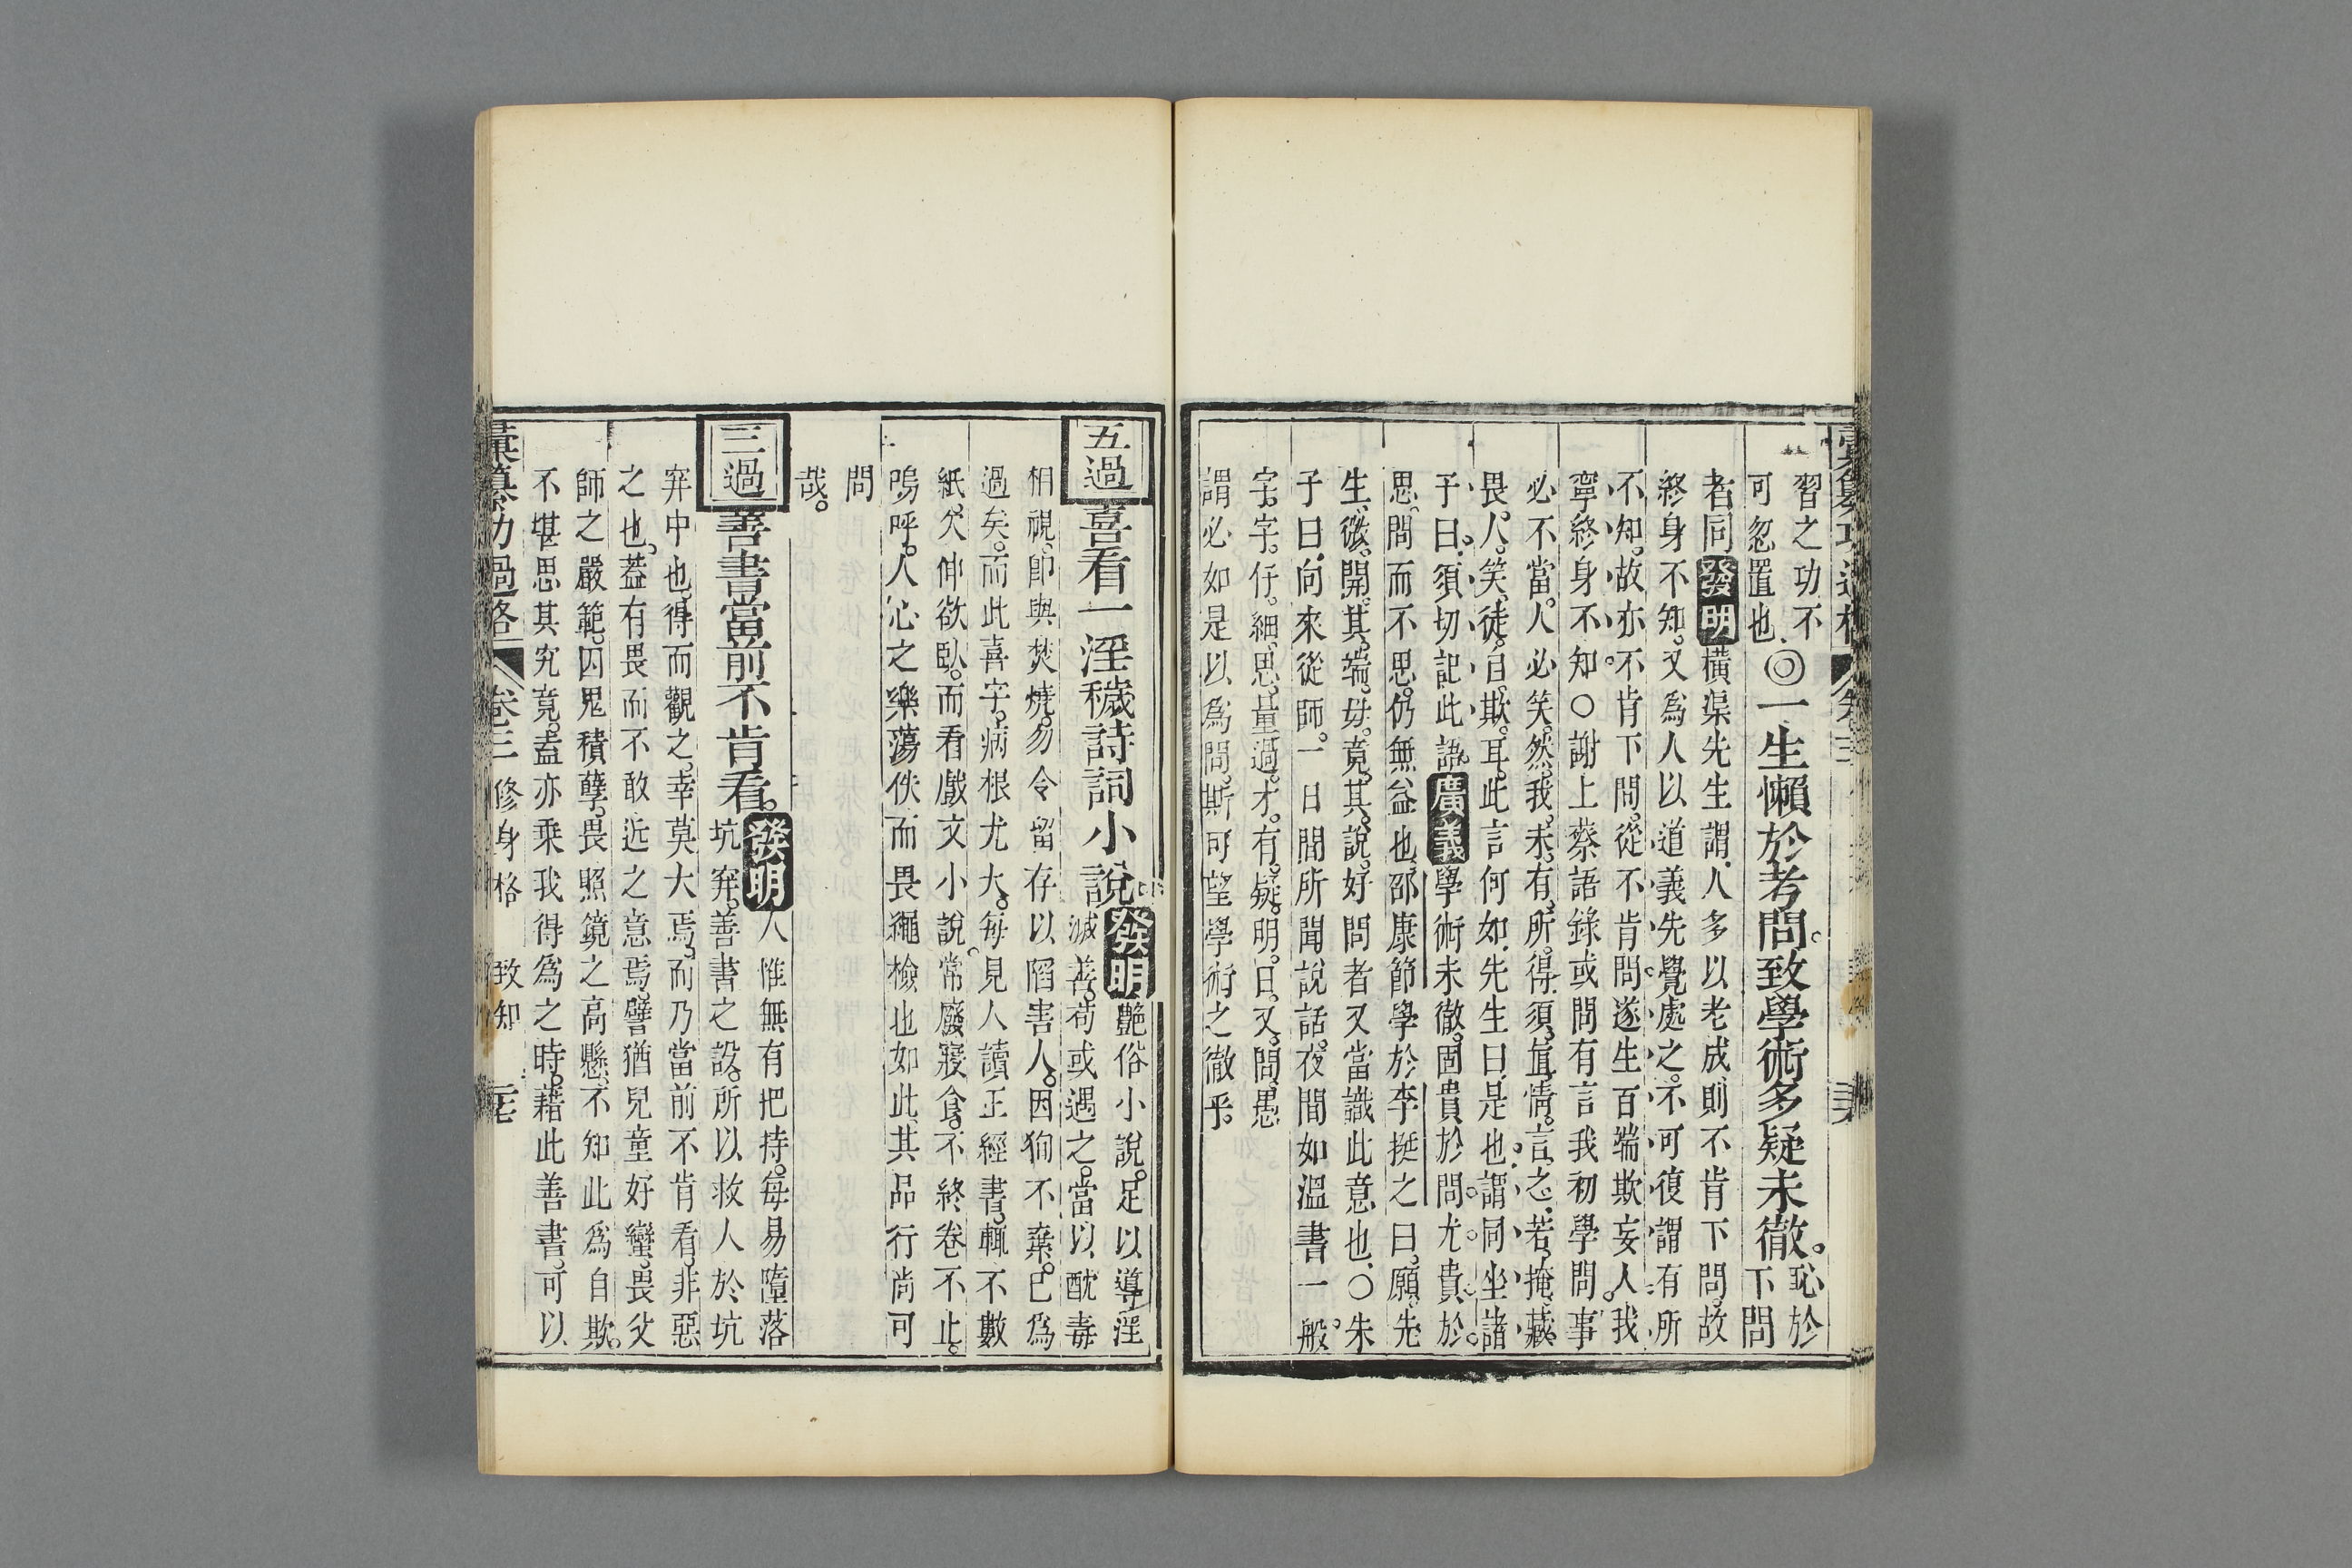 習之功不
可忽置也◎一生懶於考問。致學術多疑未徹。恥於
下問
者同發明橫渠先生謂人多以老成則不肯下問。故
終身不知。又爲人以道義先覺處之。不可復謂有所
不知。故亦不肯下問。從不肯問。遂生百端欺妄人我
寧終身不知。○謝上蔡語錄或問有言我初學問。事
必不當。人必笑。然我未有所得。須直情言之。若掩藏
畏人笑。徒自欺耳。此言何如。先生曰。是也。謂同坐諸
子曰。須切記此語。廣義學術未徹。固貴於問。尤貴於
思。問而不思。仍無益也。邵康節學於李挺之曰。願先
生微開其端。毋竟其說。好問者又當識此意也。○朱
子曰。向來從師。一日間所聞說話。夜間如溫書一般。
字字仔細思量過。才有疑。明日又問。愚
謂必如是以爲問。斯可望學術之徹乎。
五過 喜看一淫穢詩詞小說 發明艷俗小說。足以導淫
滅善。苟或遇之。當以酖毒
相視。卽與焚燒。勿令留存以陷害人。因狥不棄。已爲
過矣。而此喜字。病根尤大。每見人讀正經書。輒不數
紙。欠伸欲臥。而看戲文小說。常廢寢食。不終卷不止。
嗚呼。人心之樂蕩佚而畏繩檢也如此。其品行尚可
問
哉。
三過 善書當前不肯看。發明人惟無有把持。每易墮落
坑穽。善書之設。所以救人於坑
穽中也。得而觀之。幸莫大焉。而乃當前不肯看。非惡
之也。葢有畏而不敢近之意焉。譬猶兒童好蠻。畏父
師之嚴範。囚鬼積孽。畏照鏡之高懸。不知此爲自欺。
不堪思其究竟。盍亦乘我得爲之時。藉此善書。可以
彙纂功過格 卷三 修身格 致知